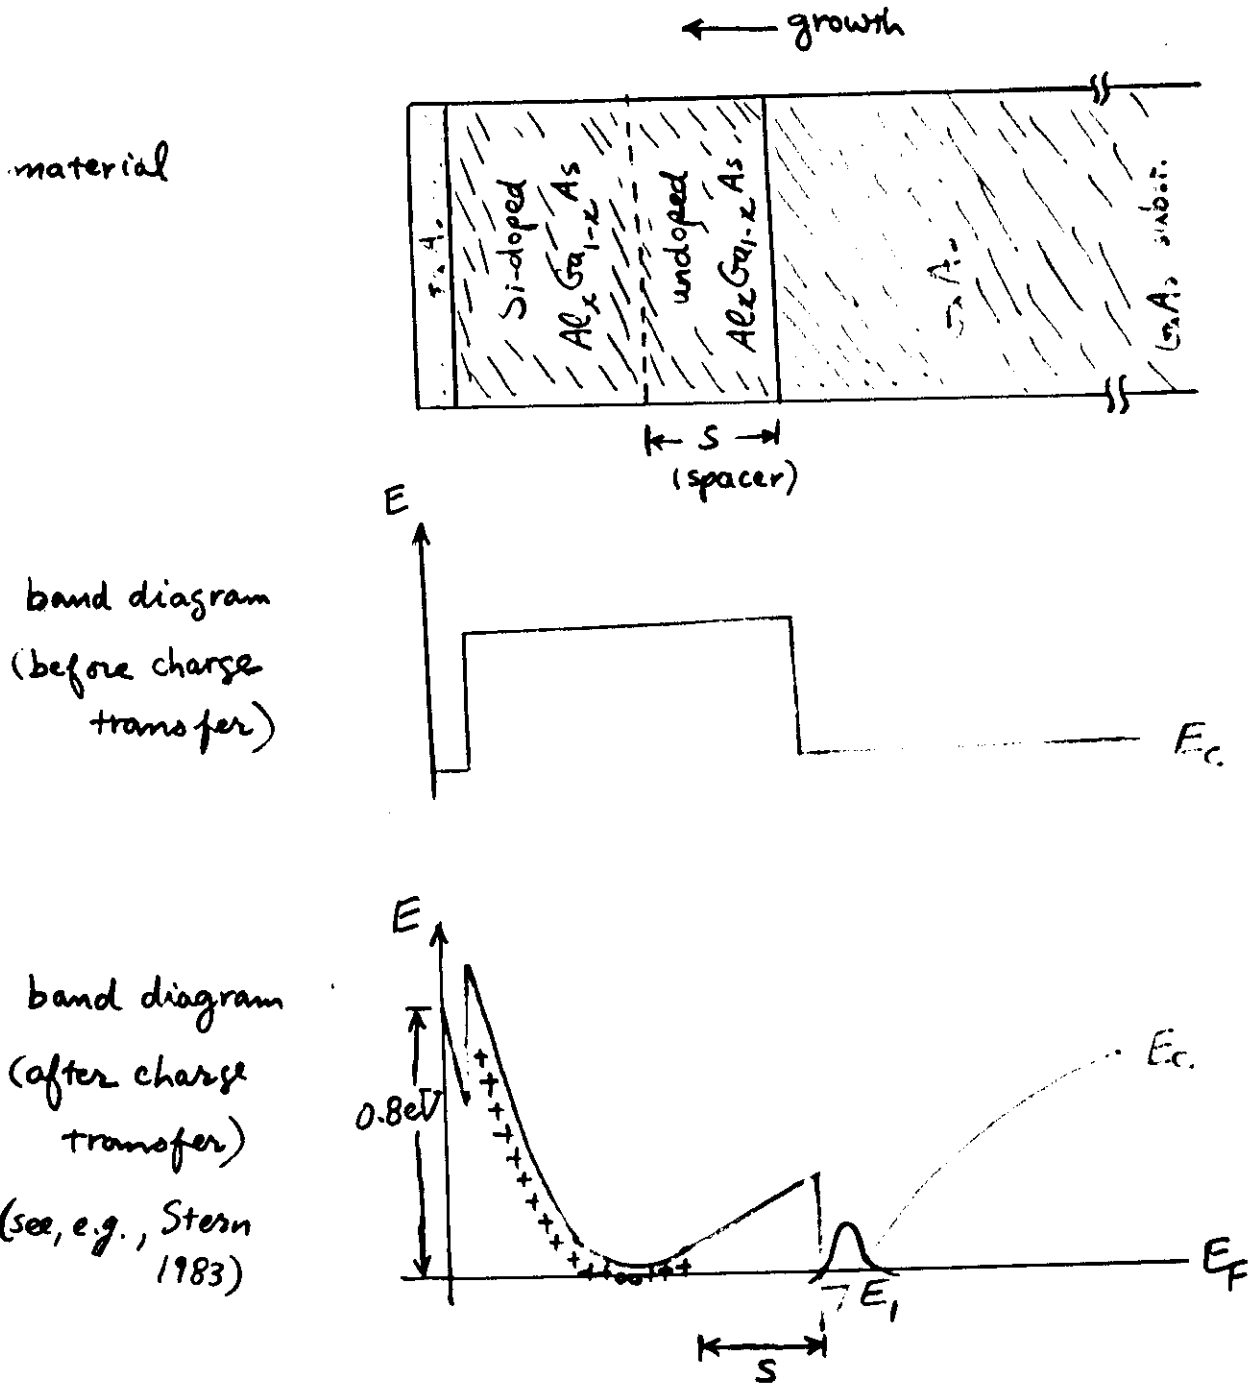 growth
material
Si-doped
AlxGa1-xAs
undoped
AlxGa1-xAs
S
(spacer)
E
band diagram
(before charge
transfer)
Ec.
E
band diagram
(after charge
transfer)
(see, e.g., Stern
1983)
0.8eV
Ec.
EF
E1
S